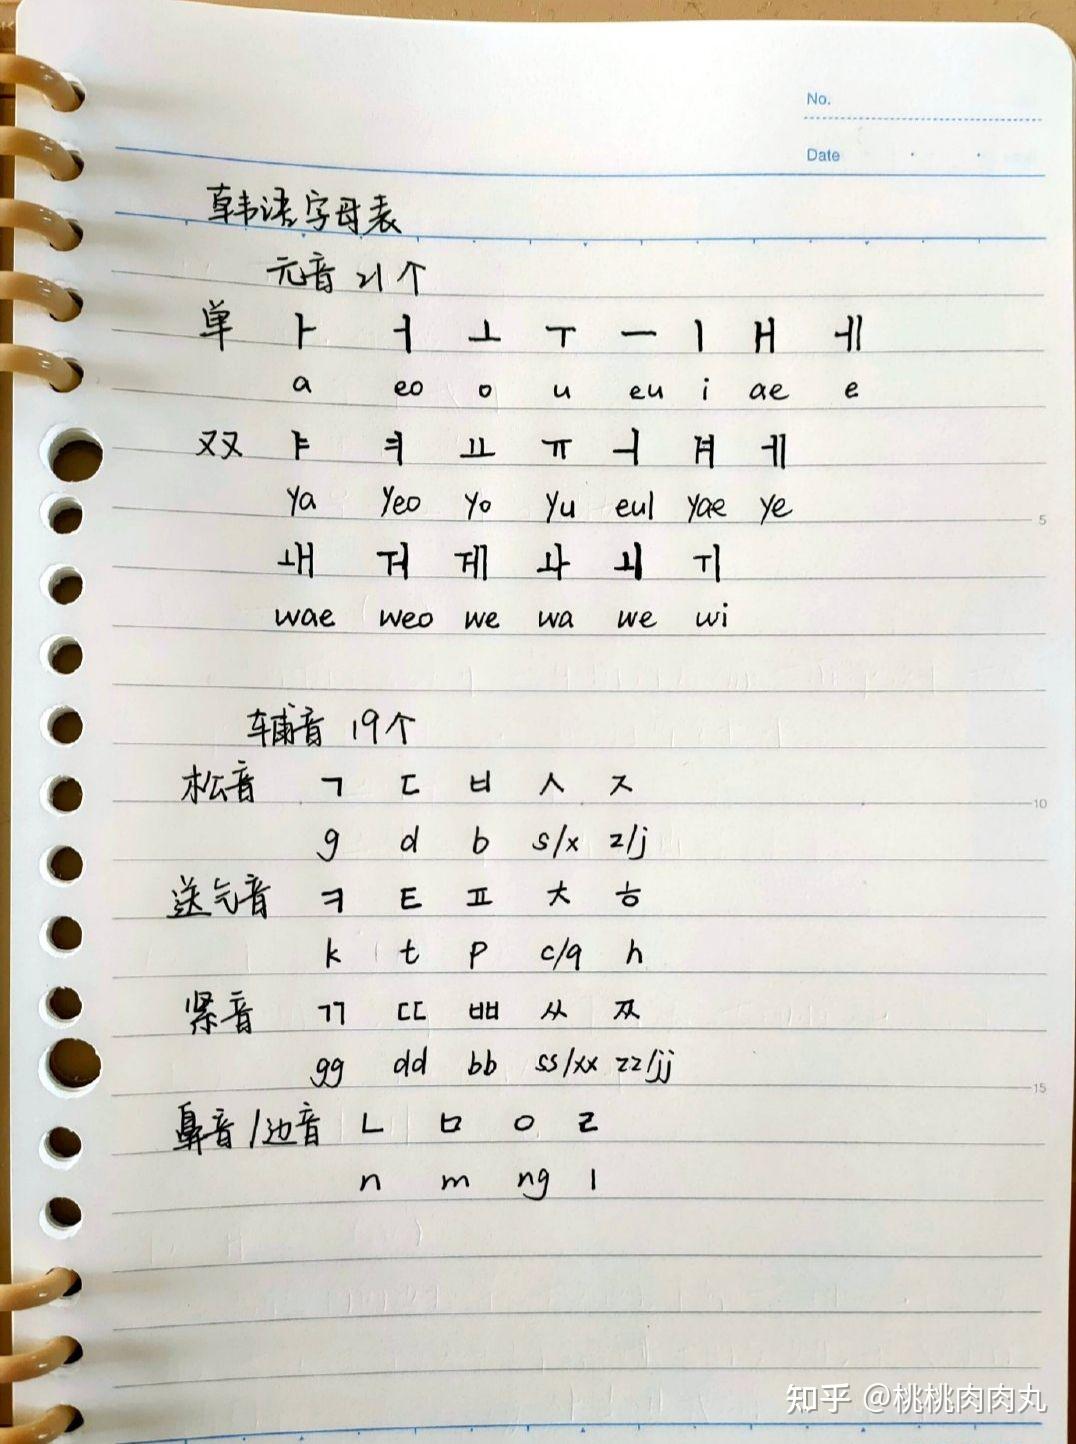 No.
Date
韩语字母表
元音 21个
单 ㅏ ㅓ ㅗ ㅜ ㅡ ㅣ ㅐ ㅔ
a eo o u eu i ae e
双 ㅑ ㅕ ㅛ ㅠ ㅢ ㅒ ㅖ
ya yeo yo yu eui yae ye
5
ㅙ ㅝ ㅞ ㅘ ㅚ ㅟ
wae weo we wa we wi
辅音 19个
松音 ㄱ ㄷ ㅂ ㅅ ㅈ
10
g d b s/x z/j
送气音 ㅋ ㅌ ㅍ ㅊ ㅎ
k t p c/q h
紧音 ㄲ ㄸ ㅃ ㅆ ㅉ
gg dd bb ss/xx zz/jj
15
鼻音/边音 ㄴ ㅁ ㅇ ㄹ
n m ng l
知乎 @桃桃肉肉丸